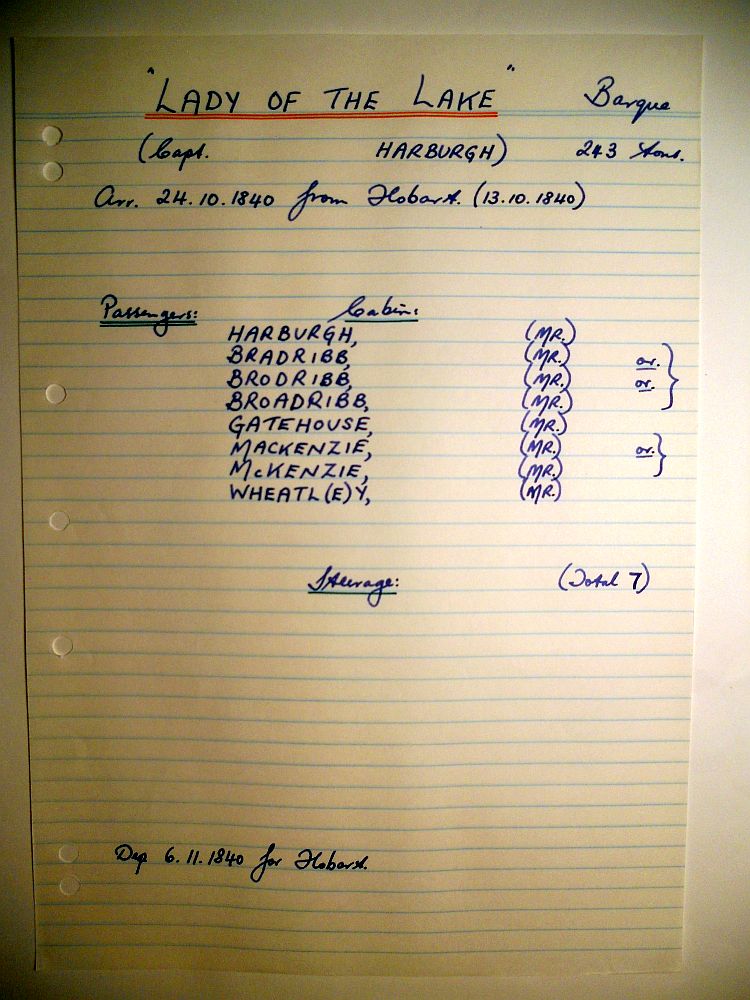 "LADY OF THE LAKE" Barque
(Capt. HARBURGH) 243 tons.
Arr. 24.10.1840 from Hobart. (13.10.1840)
Passengers: Cabin:
HARBURGH, (MR.)
BRADRIBB, (MR.) or.
BRODRIBB, (MR.) or.
BROADRIBB, (MR.)
GATEHOUSE, (MR.)
MACKENZIE, (MR.) or.
McKENZIE, (MR.)
WHEATL(E)Y, (MR.)
Steerage: (Total 7)
Dep 6.11.1840 for Hobart.